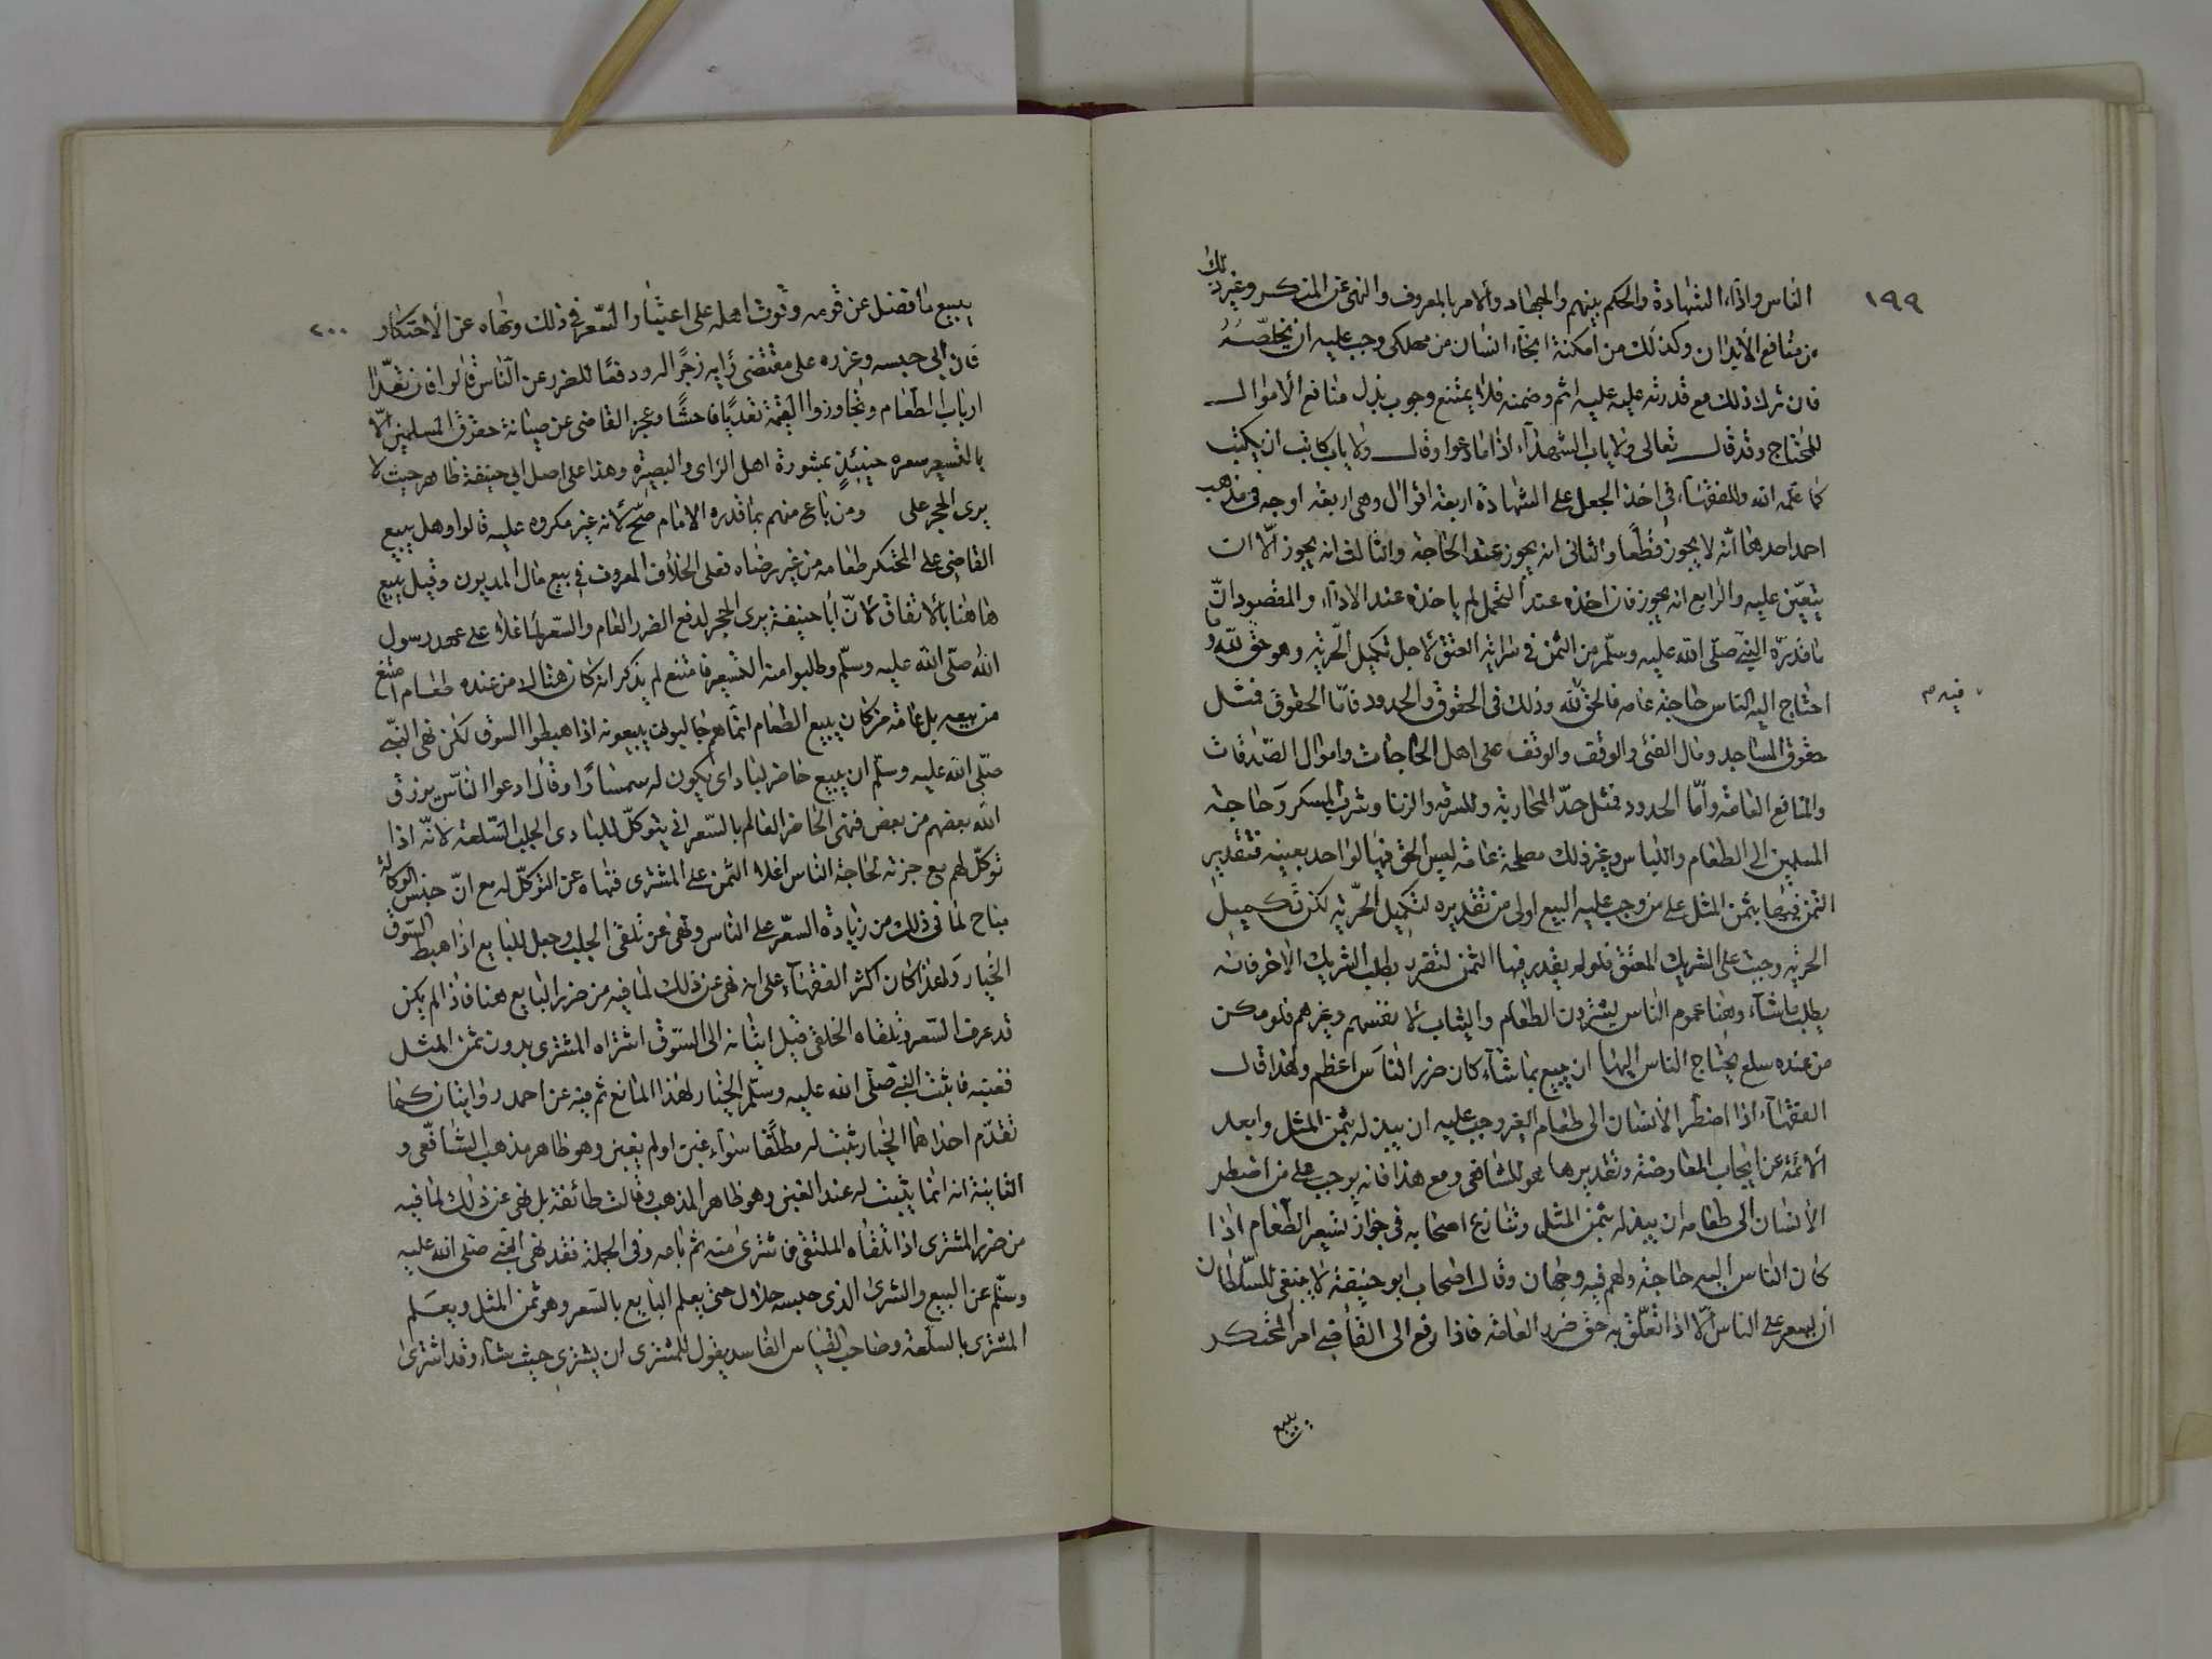 ١٩٩
الناس واداء الشهادة والحكم بينهم والجهاد والامر بالمعروف والنهى عن المنكر وغير ذلك
من منافع الأبدان وكذلك من امكنه انجاء انسان من مهلكى وجب عليه ان يخلصه
فان ترك ذلك مع قدرته عليه عليه اثم وضمنه فلا يمتنع وجوب بذل منافع الأموال
للمحتاج وقد قال تعالى ولا ياب الشهداء اذا ما دعوا وقال ولا ياب كاتب ان يكتب
كما علمه الله وللفقهاء فى اخذ الجعل على الشهادة اربعة اقوال وهى اربعة اوجه فى مذهب
احمد احدها انه لا يجوز قطعا والثانى انه يجوز عند الحاجة والثالث انه يجوز الا ان
يتعين عليه والرابع انه يجوز فان اخذه عند التحمل لم ياخذه عند الاداء والمقصود ان
ما قدره النبى صلى الله عليه وسلم من الثمن فى سراية العتق لاجل تكميل الحرية وهو حق لله وما
احتاج اليه الناس حاجة عامه فالحق لله وذلك فى الحقوق والحدود فاما الحقوق فمثل
فيه م
حقوق المساجد ومال الفئى والوقف والوقف على اهل الحاجات واموال الصدقات
والمنافع العامة واما الحدود فمثل حد المحاربة والسرقه والزنا وشرب المسكر وحاجة
المسلمين الى الطعام واللباس وغير ذلك مصلحة عامة ليس الحق فيها لواحد بعينه فتقدير
الثمن فيها بثمن المثل على من وجب عليه البيع اولى من تقديره لتكميل الحرية لكن تكميل
الحرية وجبت على الشريك المعتق فلو لم يقدر فيها الثمن لتضرر بطلب الشريك الاخر فانه
يطلب ما شاء وهنا عموم الناس يشترون الطعام والثياب لانفسهم وغيرهم فلو مكن
من عنده سلع يحتاج الناس اليها ان يبيع بما شاء كان ضرر الناس اعظم ولهذا قال
الفقهاء اذا اضطر الأنسان الى طعام الغير وجب عليه ان يبذله بثمن المثل وابعد
الأئمة عن ايجاب المعاوضة وتقديرها هو الشافعى ومع هذا فانه يوجب على من اضطر
الأنسان الى طعامه ان يبذله بثمن المثل وتنازع اصحابه فى جواز تسعير الطعام اذا
كان الناس اليه حاجة ولهم فيه وجهان وقال اصحاب ابو حنيفة لا ينبغى للسلطان
ان يسعر على الناس الا اذا تعلق به حق ضرر العامة فاذا رفع الى القاضى امر المحتكر
يبيع
٢٠٠
يبيع ما فضل عن قوته وقوت اهله على اعتبار السعر فى ذلك ونهاه عن الأحتكار
فان ابى حبسه وعزره على مقتضى رايه زجرا له ودفعا للضرر عن الناس قالوا فان تعدا
ارباب الطعام وتجاوزوا القيمة تعديا فاحشا وعجز القاضى عن صيانة حقوق المسلمين الا
بالتسعير سعره حينئذ بمشورة اهل الراى والبصيرة وهذا على اصل ابى حنيفة ظاهر حيث لا
يرى الحجر على ومن باع منهم بما قدره الامام صح لانه غير مكروه عليه قالوا وهل يبيع
القاضى على المحتكر طعامه من غير رضاه فعلى الخلاف المعروف فى بيع مال المديون وقيل يبيع
هاهنا بالاتفاق لان ابا حنيفة يرى الحجر لدفع الضرر العام والسعر لما غلا على عهد رسول
الله صلى الله عليه وسلم وطلبوا منه التسعير فامتنع لم يذكر انه كان هناك من عنده طعام امتنع
من بيعه بل عامة من كان يبيع الطعام انما هم جالبون يبيعونه اذا هبطوا السوق لكن نهى النبى
صلى الله عليه وسلم ان يبيع حاضر لباد اى يكون له سمسارا وقال دعوا الناس يرزق
الله بعضهم من بعض فنهى الحاضر العالم بالسعر ان يتوكل للبادى الجلب السلعة لانه اذا
توكل لهم مع خبرته لحاجة الناس اغلا الثمن على المشترى فنهاه عن التوكل له مع ان جنس الوكالة
مباح لما فى ذلك من زيادة السعر على الناس ونهى عن تلقى الجلب وجعل للبايع اذا هبط السوق
الخيار ولهذا كان اكثر الفقهاء على انه نهى عن ذلك لما فيه من ضرر البايع هنا فاذا لم يكن
قد عرف السعر وتلقاه الخلقى قبل اتيانه الى السوق اشتراه المشترى بدون ثمن المثل
فغبنه فاثبت النبى صلى الله عليه وسلم الخيار لهذا المانع ثم فيه عن احمد روايتان كما
تقدم احداهما الخيار يثبت له مطلقا سواء غبن او لم يغبن وهو ظاهر مذهب الشافعى و
الثانية انه انما يثبت له عند الغبن وهو ظاهر المذهب وقالت طائفة بل نهى عن ذلك لما فيه
من ضرر المشترى اذا تلقاه الملتقى فاشترى منه ثم باعه وفى الجملة فقد نهى النبى صلى الله عليه
وسلم عن البيع والشرى الذى جنسه حلال حتى يعلم البايع بالسعر وهو ثمن المثل ويعلم
المشترى بالسلعة وصاحب القياس الفاسد يقول للمشترى ان يشترى حيث شاء وقد اشترى